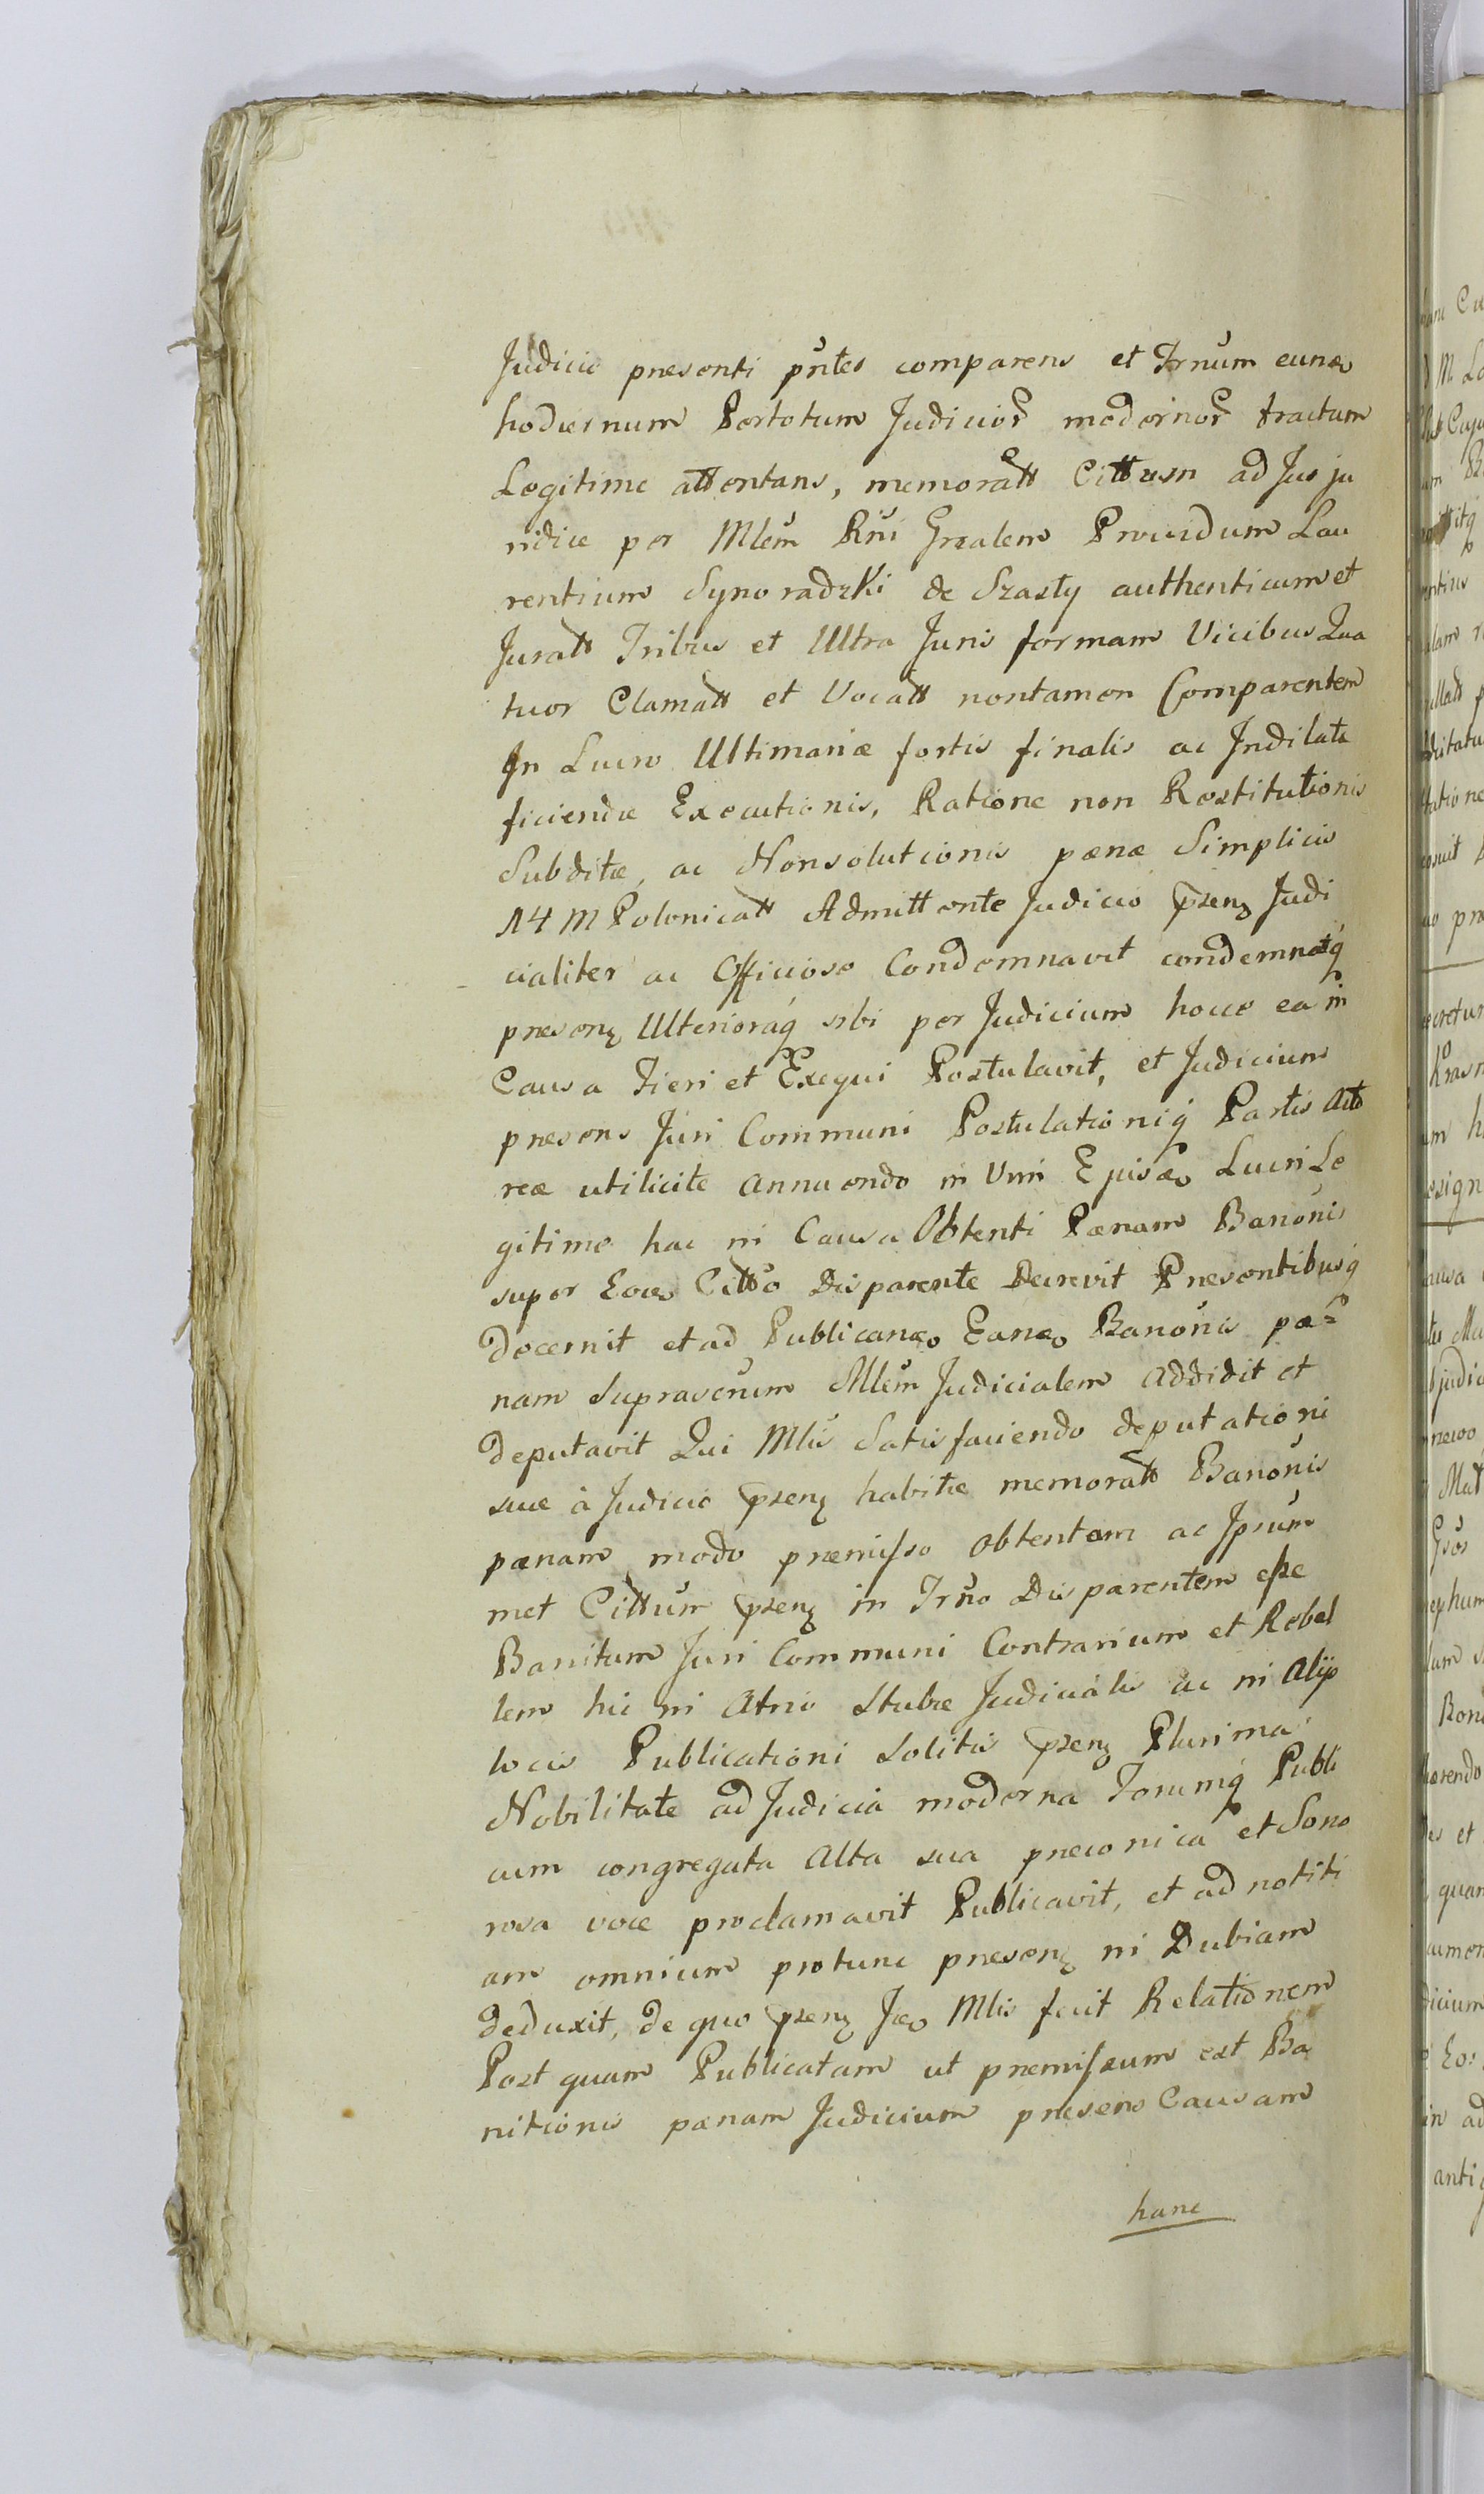 Judicio presenti pñtes comparens et Trnum eunđ
hodiernum Pertotum Judicior modernor tractum
Legitime attentans, memoratt Cittum ad Jus ju
ridice per Mlem Rñi Gralem Providum Lau
rentium Synoradzki de Szasty authenticum et
Juratt Tribus et Ultra Juris formam Vicibus Qua
tuor Clamatt et Vocatt nontamen Comparentem
In Lucro Ultimariæ fortis finalis ac Indilate
ficiendæ Executionis, Ratione non Restitutionis
Subditæ, ac Nonsolutionis pænæ Simplicis
14 M Polonicatt Admittente Judicio præsenz Judi
cialiter ac Officiose Condemnavit condemnatq
presenz Ulterioraq sibi per Judicium hocce ea in
Causa Fieri et Exequi Postulavit, et Judicium
presens Juri Communi Postulationiq Partis Acto
reæ utilicite annuendo in Vim Ejusđ Lucri Le
gitime hac in Causa Obtenti Pænam Banonis
super Eođ Citto Disparente Decrevit Presentibusq
decernit et ad Publicanđ Eanđ Banonis pæ=
nam suprascrium Mlem Judicialem addidit et
deputavit Qui Mlis Satisfaciendo deputationi
suæ à Judicio præsenz habitæ memoratt Banonis
pænam modo præmisso obtentam ac Ipsum
met Cittum præsenz in Trno Disparentem esse
Banitum Juri Communi Contrarium et Rebel
lem hic in Atrio Stubæ Judicialis ac in Alijs
locis Publicationi Solitis præsenz Plurima
Nobilitate ad Judicia moderna Forumq Publi
cum congregata Alta sua preconica et Sono
rosa voce proclamavit Publicavit, et ad notiti
am omnium protunc presenz in Dubiam
deduxit, de quo præsenz Jđ Mlis fecit Relationem
Post quam Publicatam ut premissum est Ba
nitionis pænam Judicium presens Causam
hanc